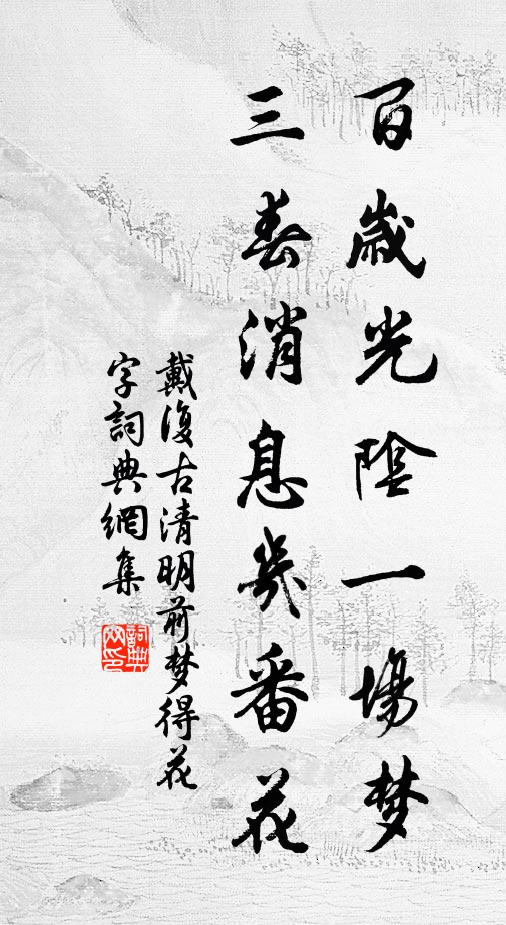 百歲光陰一場梦
三春消息幾番花
戴復古清明前梦得花
字詞典網集
詞典網印